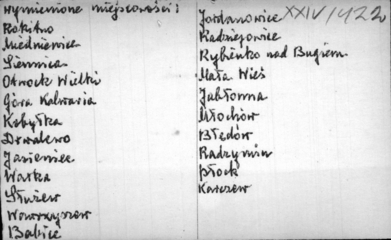 wymienione miejscowości:
Rokitno
Miedniewice
Siennica
Otwock Wielki
Góra Kalwaria
Kobyłka
Drwalewo
Jasieniec
Warka
Służew
Wawrzyszew
Babice
Jordanowice XXIV/1422
Radziejowice
Rybienko nad Bugiem
Mała Wieś
Jabłonna
Młochów
Błędów
Radzymin
Płock
Karczew